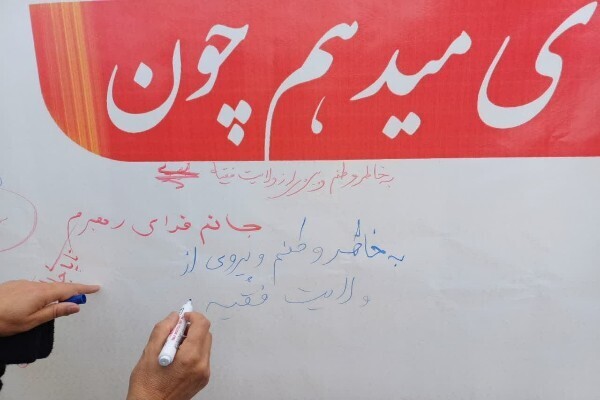 ی میدهم چون
به خاطر وطنم و پیروی از ولایت فقیه
جانم فدای رهبرم
به خاطر وطنم و پیروی از
ولایت فقیه